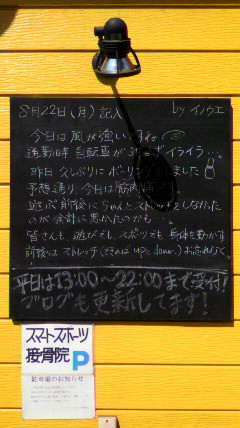 8月22日(月)記入 by イノウエ
今日は風が強いですね
通勤時 自転車が イライラ…
昨日 久しぶりに ボーリング ました
予想通り、今日は筋肉痛
遊ぶ前後に ちゃんとストレッチをしなかった
のが余計に悪かったかも
皆さんも、遊びでも、スポーツでも、身体を動かす
前後は ストレッチ( up と down )お忘れなく
平日は13:00〜22:00まで受付!
ブログも更新してます!
スマートスポーツ
接骨院 P
駐車場のお知らせ